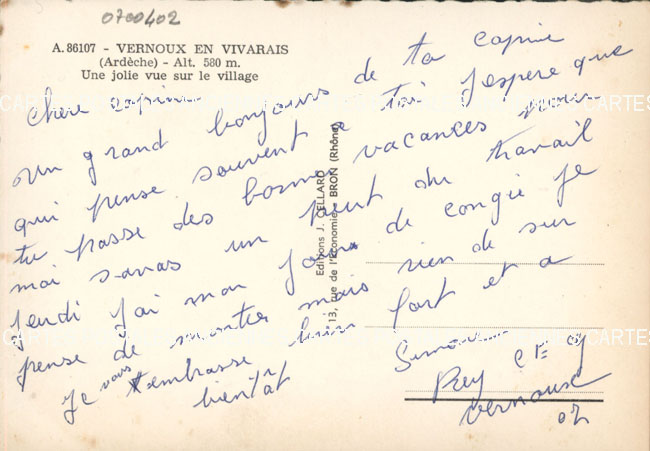 0700402
A. 86107 - VERNOUX EN VIVARAIS
(Ardèche) - Alt. 580 m.
Une jolie vue sur le village
Editions J. CELLARD
13, rue de l'Economie - BRON (Rhône)
Chere copine
un grand bonjours de ta copine
qui pense souvent a toi J'espere que
tu passe des bonne vacances nous
moi un peut du travail
Jendi J'ai mon Jour de congie Je
pense de monter mais rien de sur
Je vous t'embrasse bien fort et a
bientôt
Simone
Rey
Vernoux
07
CARTES